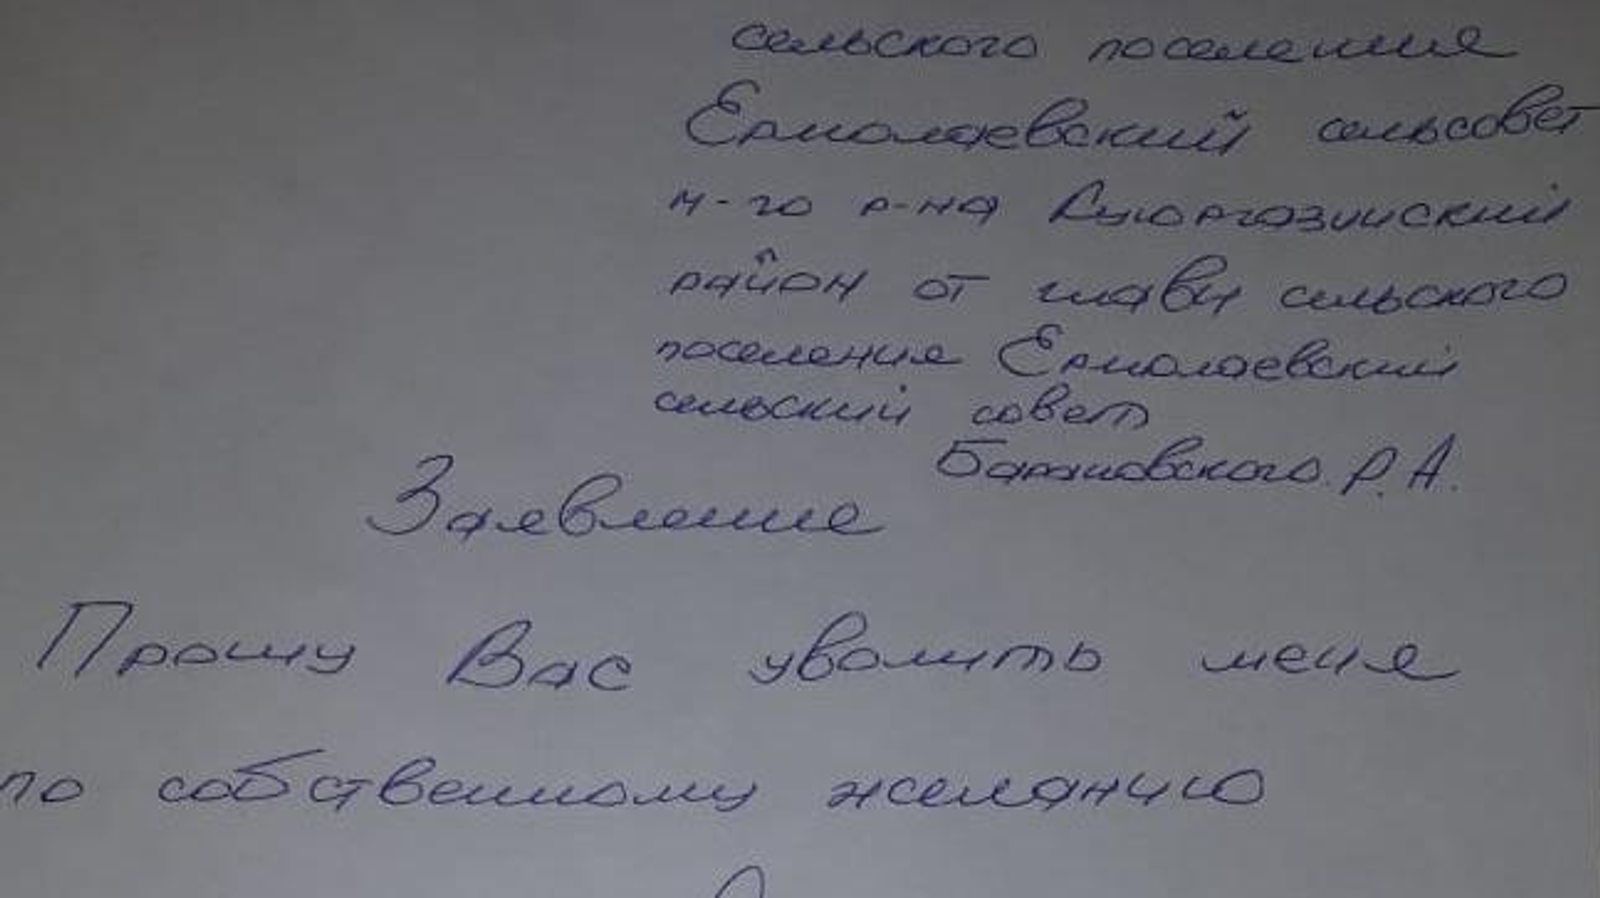 сельского поселения
Ермолаевский сельсовет
м-го р-на Куюргазинский
район от главы сельского
поселения Ермолаевский
сельский совет
Барановского Р. А.
Заявление
Прошу Вас уволить меня
по собственному желанию